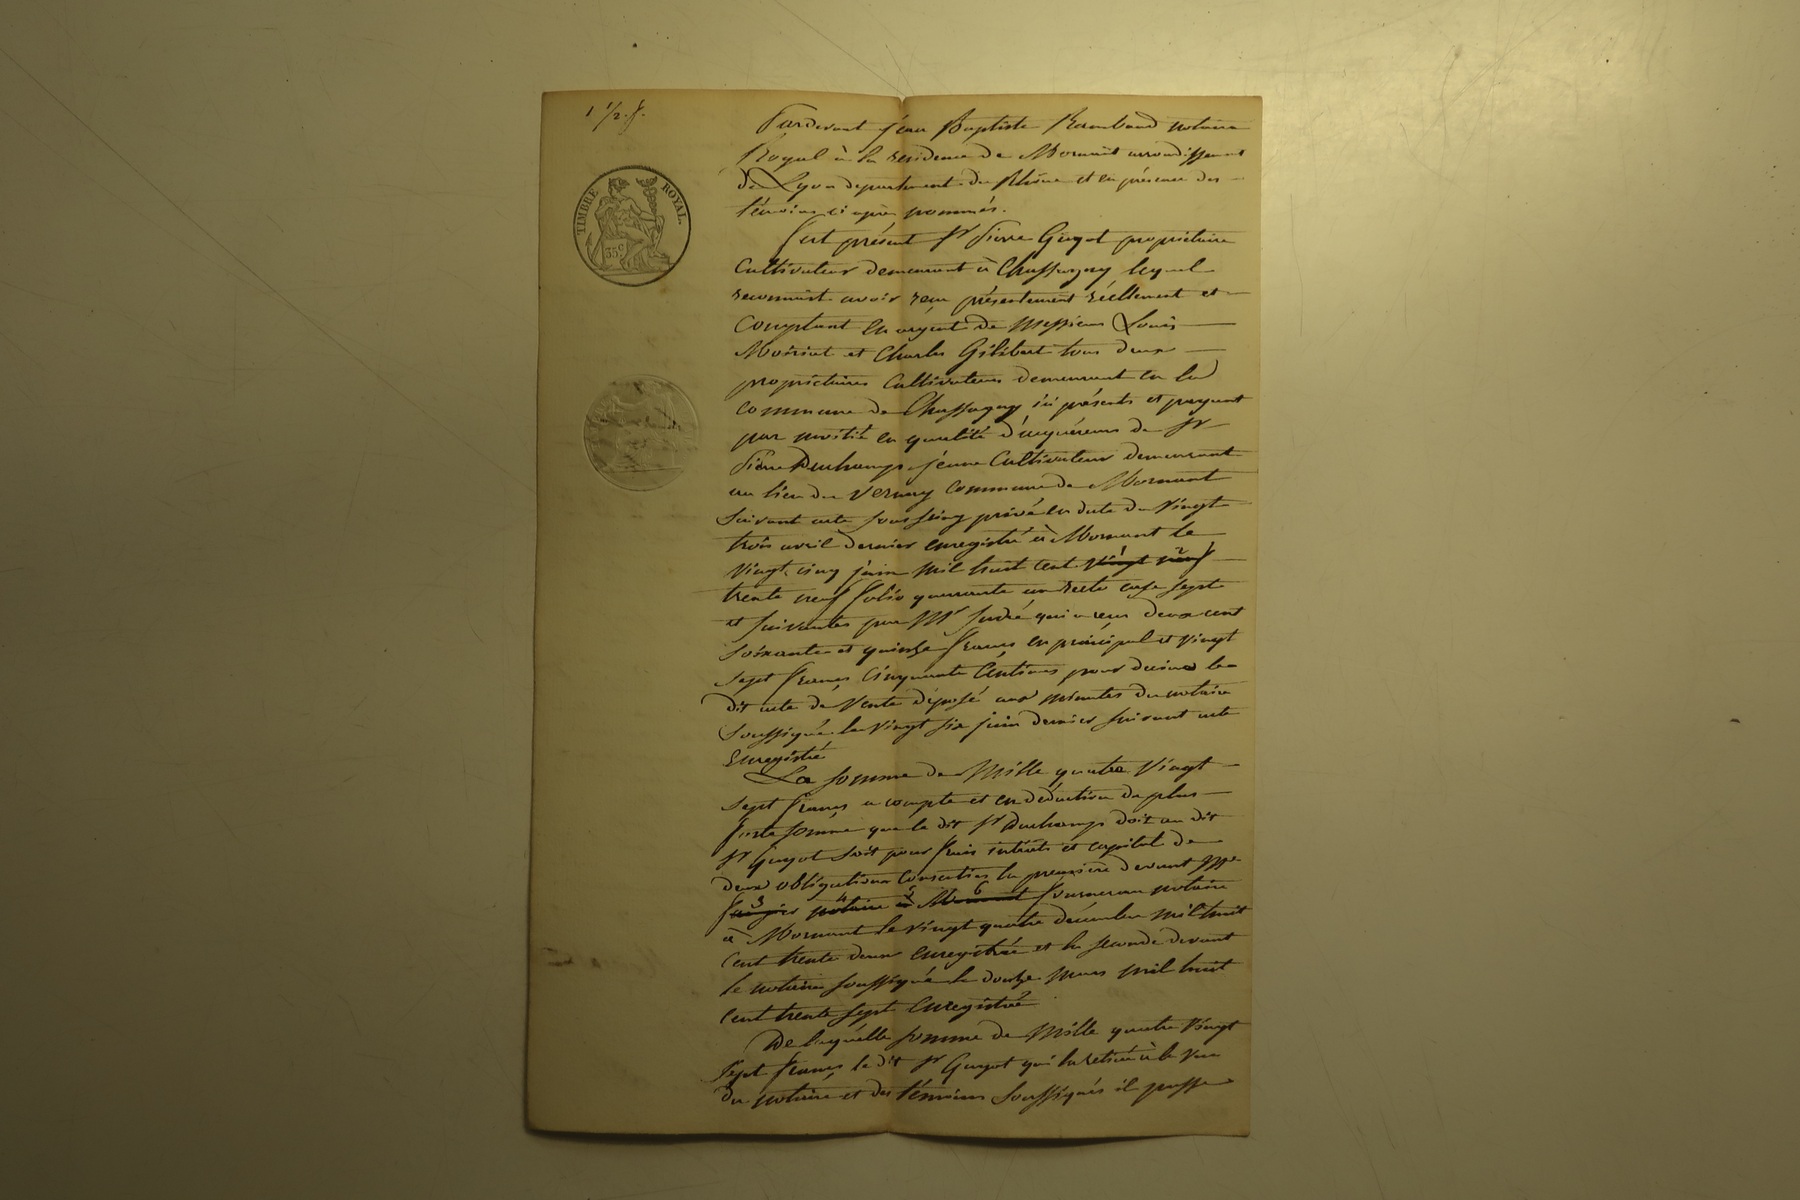 1 1/2. f.
TIMBRE ROYAL.
35 c
Pardevant Jean Baptiste Rambaud notaire
Royal à la residence de Mornant arrondissement
de Lyon departement du Rhône et en présence des
témoins ci après nommés.
Fut présent Sr Pierre Guyot propriétaire
Cultivateur demeurant à Chassagny lequel
reconnait avoir reçu présentement réellement et
Comptant en argent de Messieurs Louis
et Charles Gilibert tous deux
propriétaires Cultivateurs demeurant en la
commune de Chassagny ici présents et payant
par moitié en qualité d'acquéreurs de Sr
Pierre Duchamp jeune Cultivateur demeurant
au lieu du Vernay Commune de Mornant
Suivant acte sous seing privé en date du Vingt
trois avril dernier enregistré à Mornant le
Vingt cinq juin mil huit cent vingt neuf
trente neuf folio quarante un recto case sept
et suivantes par Mr Sudré qui a reçu deux cent
Soixante et quinze francs en principal et Vingt
sept francs Cinquante Centimes pour decime le
dit acte de Vente déposé aux minutes du notaire
Soussigné le Vingt six juin dernier suivant acte
Enregistré
La somme de Mille quatre Vingt
sept francs a compte et en déduction de plus
forte somme que le dit Sr Duchamp doit au dit
Sr Guyot soit pour frais intérêts et capital de
deux obligations Consenties la première devant Me
notaire à Mornant Fournereau notaire
à Mornant le vingt quatre décembre mil huit
Cent trente deux enregistrée et la seconde devant
le notaire soussigné le douze mars mil huit
Cent trente sept Enregistrée
De laquelle somme de Mille quatre Vingt
Sept francs le dit Sr Guyot qui la retirée à la Vue
du notaire et des témoins Soussignés il passe